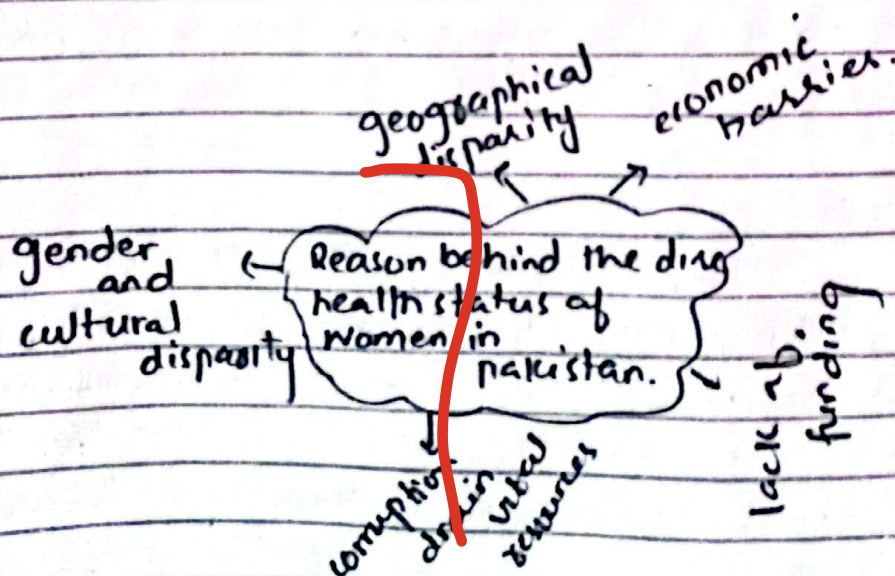 geographical
disparity
economic
barries.
gender
and
cultural
disparity
Reason behind the dire
health status of
women in
pakistan.
lack ab.
funding
corruption
drain
vital
resources